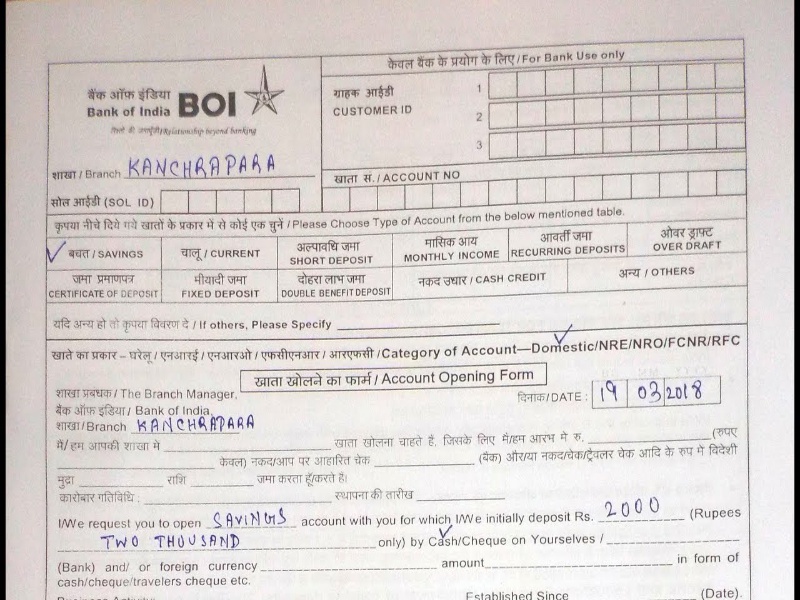 केवल बैंक के प्रयोग के लिए/For Bank Use only
बैंक ऑफ इंडिया
Bank of India BOI
Relationship beyond banking
ग्राहक आईडी
CUSTOMER ID
1
2
3
शाखा/Branch KANCHRAPARA
खाता सं./ACCOUNT NO
सोल आईडी (SOL ID)
कृपया नीचे दिये गये खातों के प्रकार में से कोई एक चुनें/Please Choose Type of Account from the below mentioned table.
✓ बचत/SAVINGS
चालू/CURRENT
अल्पावधि जमा
SHORT DEPOSIT
मासिक आय
MONTHLY INCOME
आवर्ती जमा
RECURRING DEPOSITS
ओवर ड्राफ्ट
OVER DRAFT
जमा प्रमाणपत्र
CERTIFICATE OF DEPOSIT
मीयादी जमा
FIXED DEPOSIT
दोहरा लाभ जमा
DOUBLE BENEFIT DEPOSIT
नकद उधार/CASH CREDIT
अन्य/OTHERS
यदि अन्य हो तो कृपया विवरण दे/If others, Please Specify
खाते का प्रकार – घरेलू/एनआरई/एनआरओ/एफसीएनआर/आरएफसी/Category of Account—Domestic/NRE/NRO/FCNR/RFC
खाता खोलने का फार्म/Account Opening Form
शाखा प्रबंधक/The Branch Manager,
दिनांक/DATE : 19 03 2018
बैंक ऑफ इंडिया/Bank of India,
शाखा/Branch KANCHRAPARA
मैं/हम आपकी शाखा मे खाता खोलना चाहते हैं, जिसके लिए मैं/हम आरंभ में रु. (रुपए
केवल) नकद/आप पर आहारित चेक (बैंक) और/या नकद/चेक/ट्रैवलर चेक आदि के रुप में विदेशी
मुद्रा राशि जमा करता हूँ/करते है।
कारोबार गतिविधि : स्थापना की तारीख
I/We request you to open SAVINGS account with you for which I/We initially deposit Rs. 2000 (Rupees
TWO THOUSAND only) by Cash/Cheque on Yourselves /
(Bank) and/ or foreign currency amount in form of
cash/cheque/travelers cheque etc.
Established Since (Date).